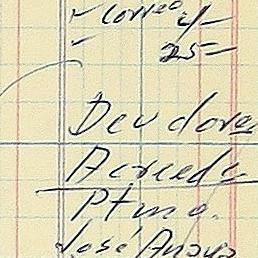 " correo 4/
" 25=
Deudores
Acreed
Ptmo.
José Anaya